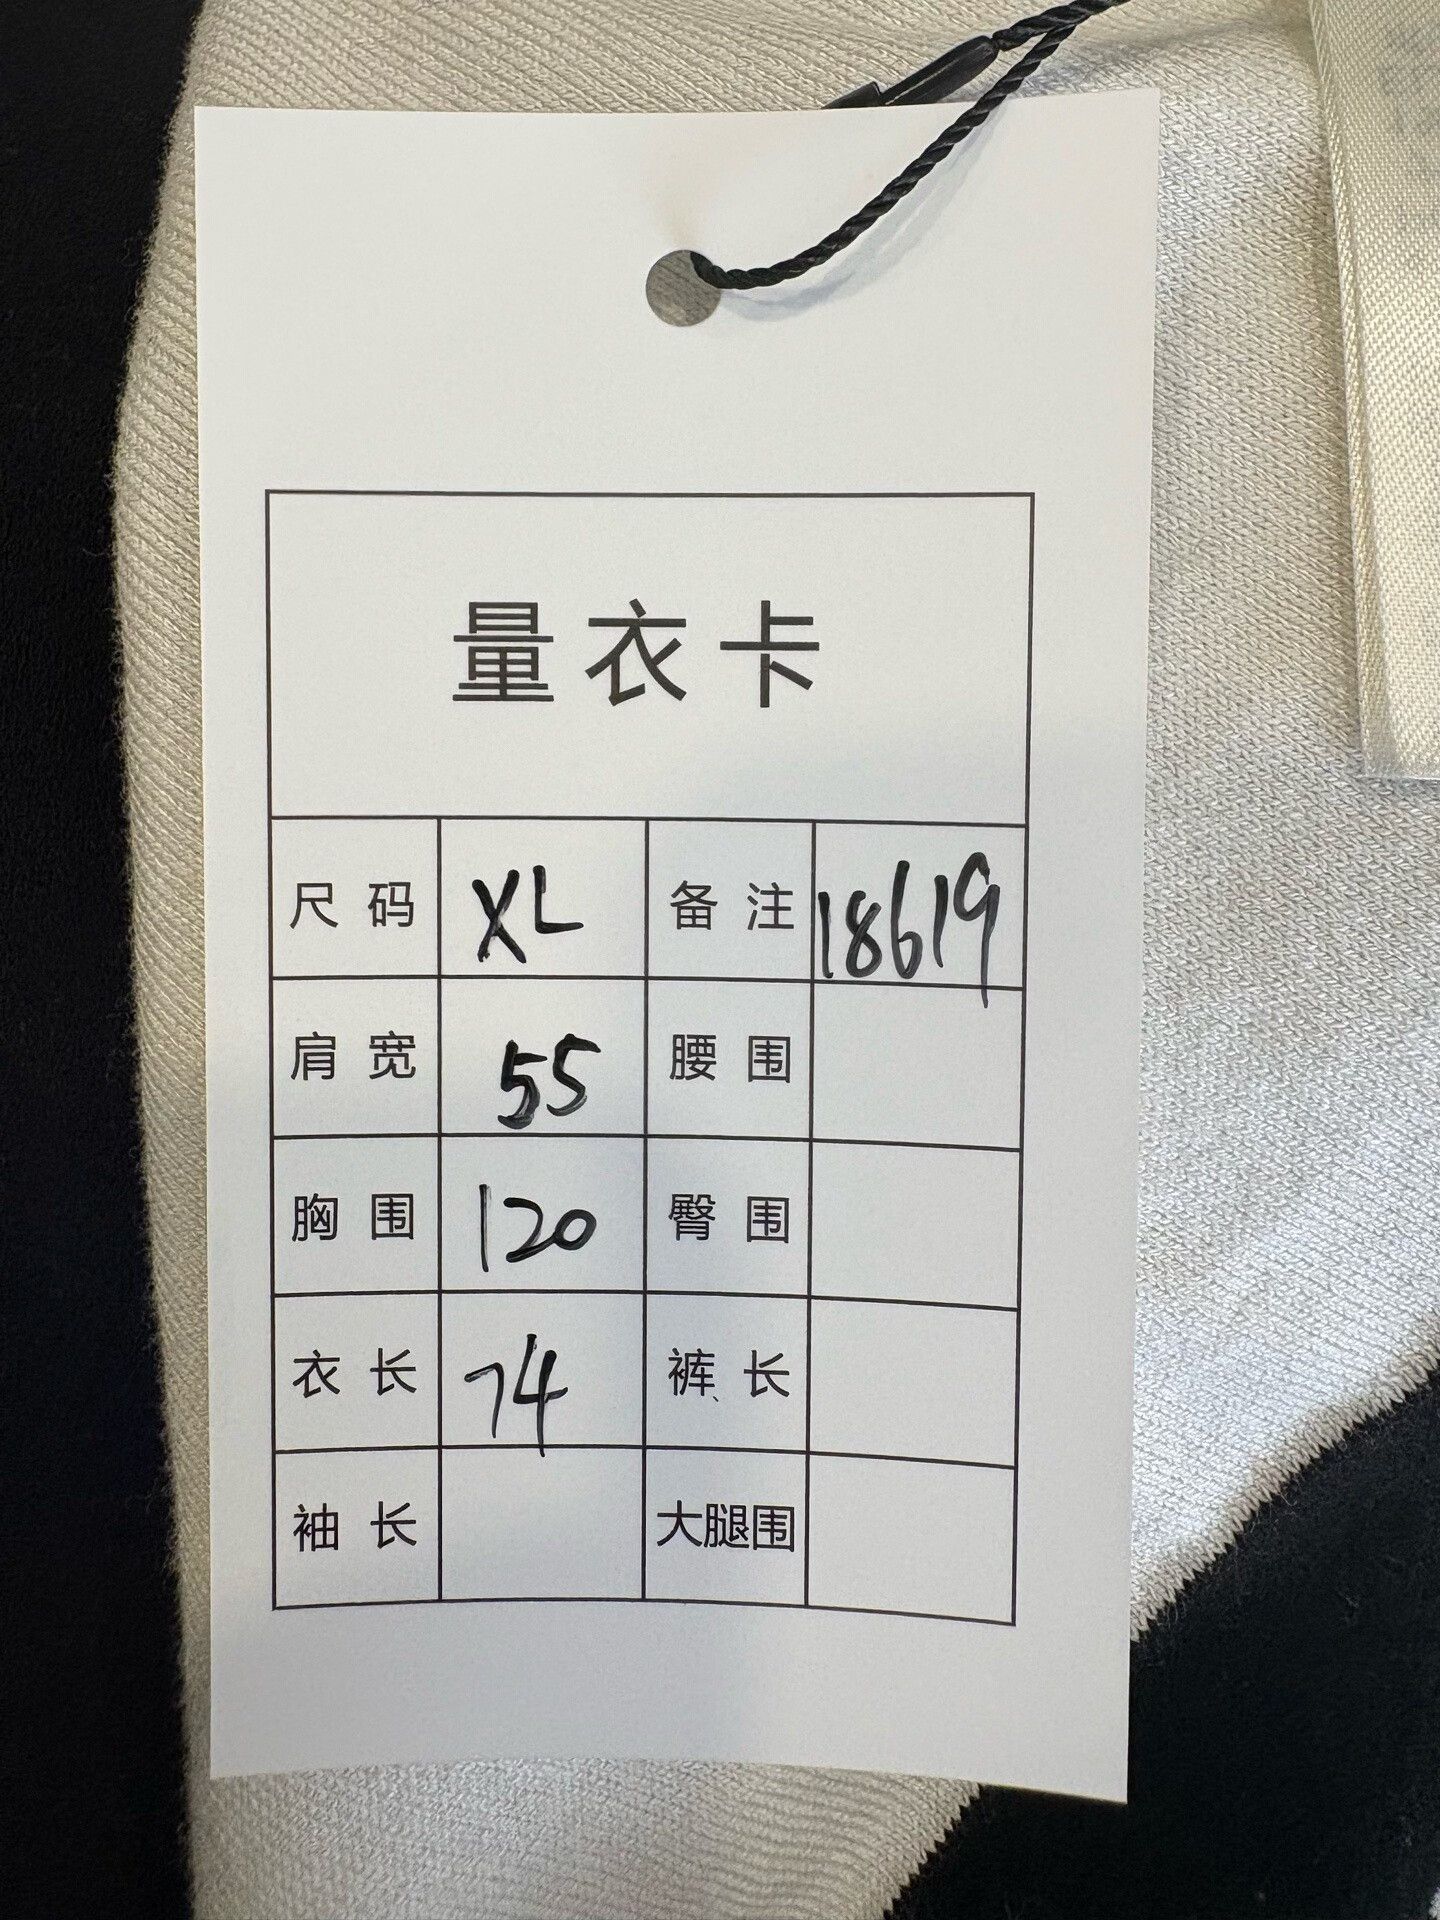 量衣卡
尺码 XL 备注 18619
肩宽 55 腰围
胸围 120 臀围
衣长 74 裤长
袖长 大腿围